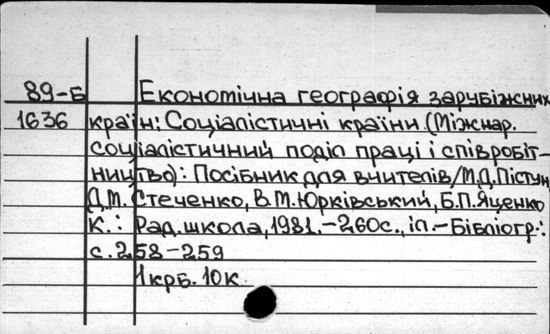 89-Б Економічна географія зарубіжних
1636 країн: Соціалістичні країни (Міжнар.
соціалістичний поділ праці і співробіт-
ництво): Посібник для вчителів/М.Д.Пістун,
Д.М. Стеченко, В.М.Юрківський, Б.П.Яценко
К.: Рад.школа, 1981.-260с., іл.-Бібліогр.:
с.258-259
1 крб. 10к.